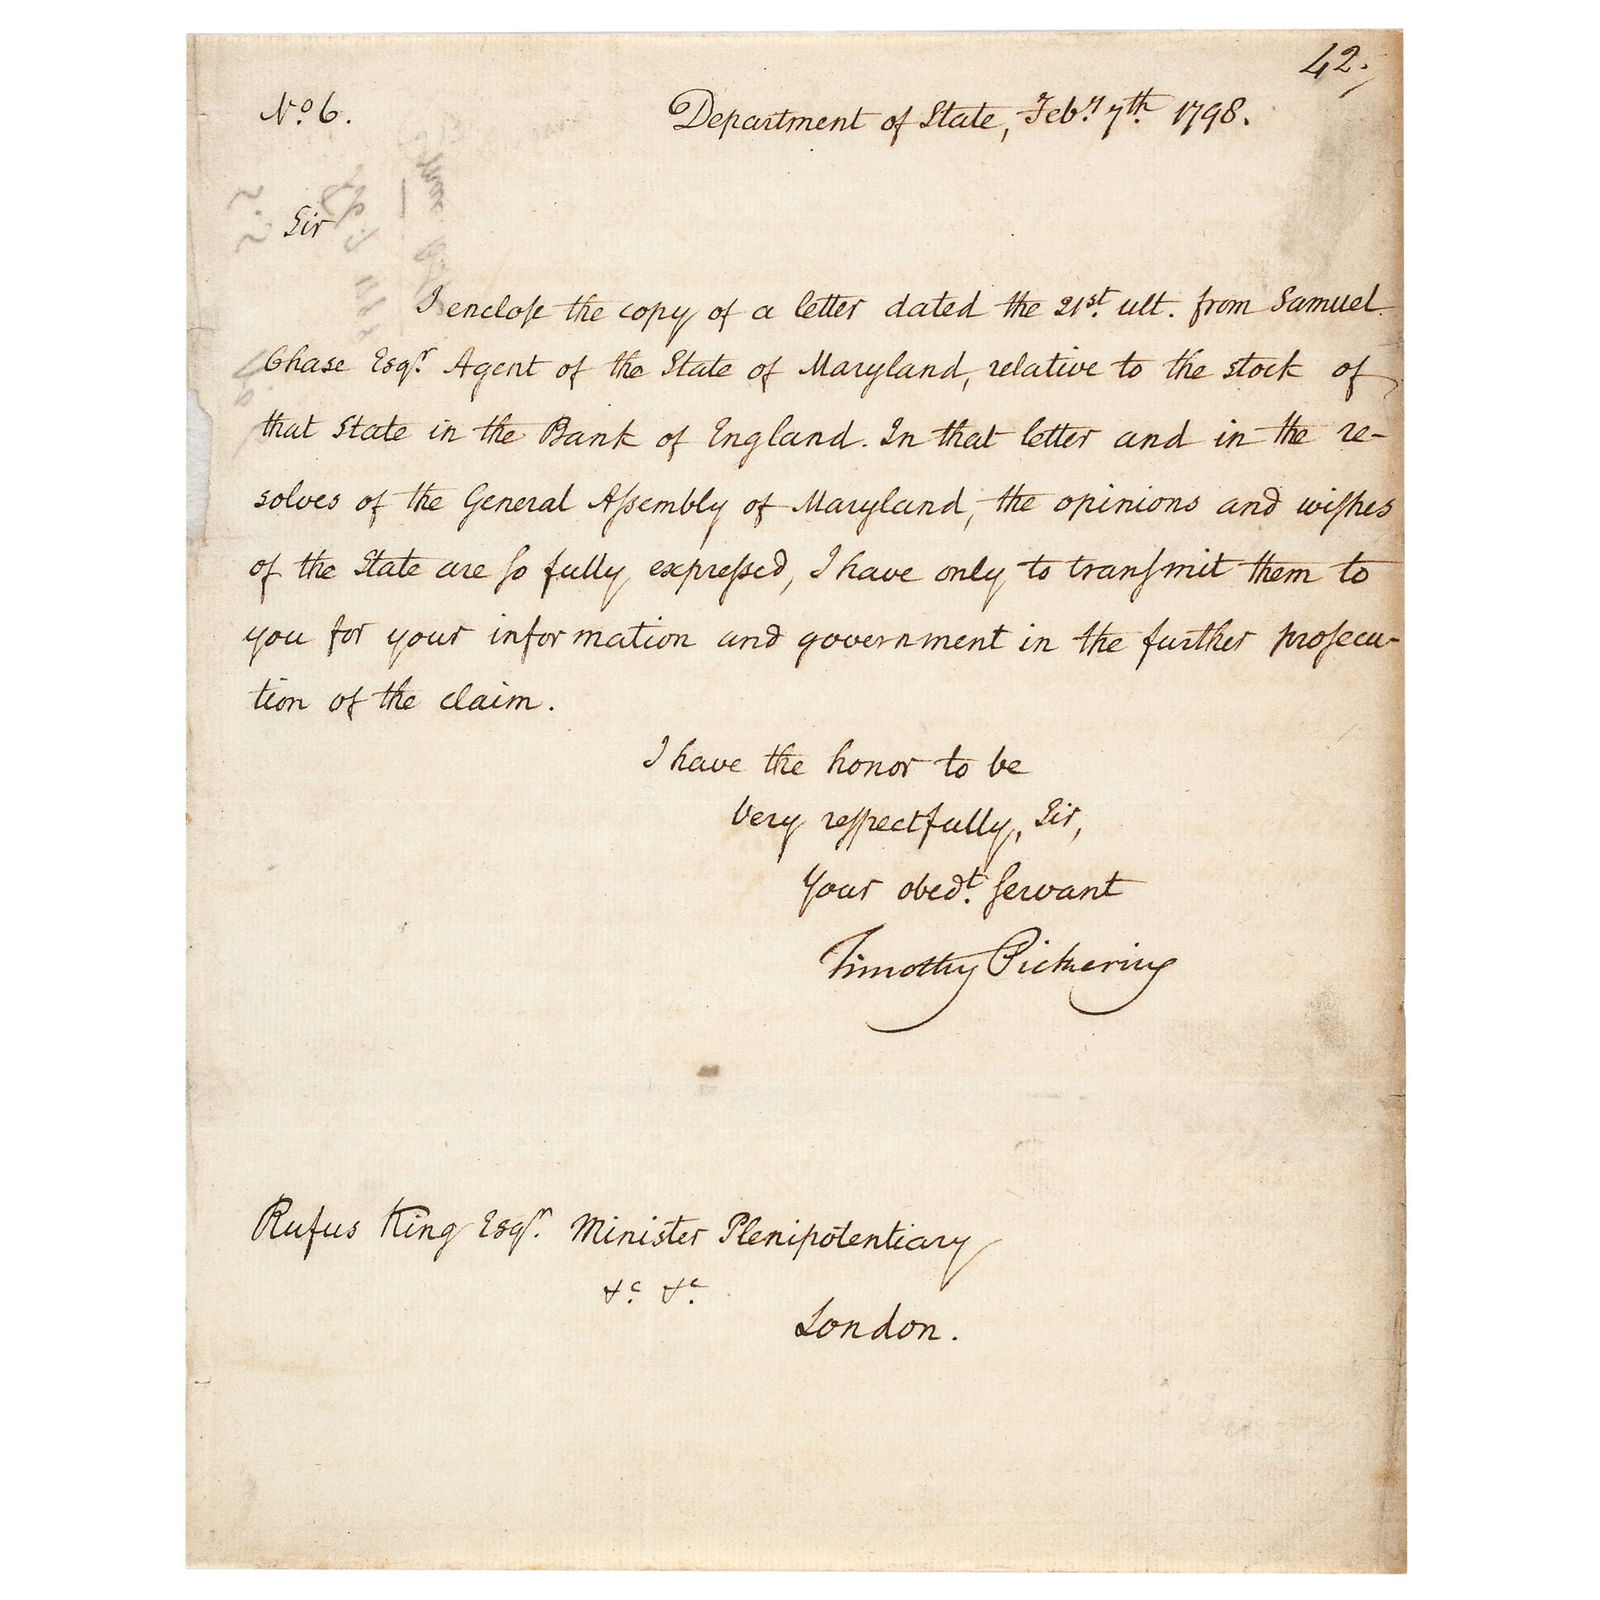 42.
No. 6.
Department of State, Feby. 7th. 1798.
Sir
I encloſe the copy of a letter dated the 21st. ult. from Samuel
Chase Esqr. Agent of the State of Maryland, relative to the stock of
that State in the Bank of England. In that letter and in the re-
solves of the General Aſsembly of Maryland, the opinions and wiſhes
of the State are ſo fully expreſsed, I have only to tranſmit them to
you for your information and government in the further proſecu-
tion of the claim.
I have the honor to be
very reſpectfully, Sir,
Your obedt. ſervant
Timothy Pickering
Rufus King Esqr. Minister Plenipotentiary
&c. &c.
London.